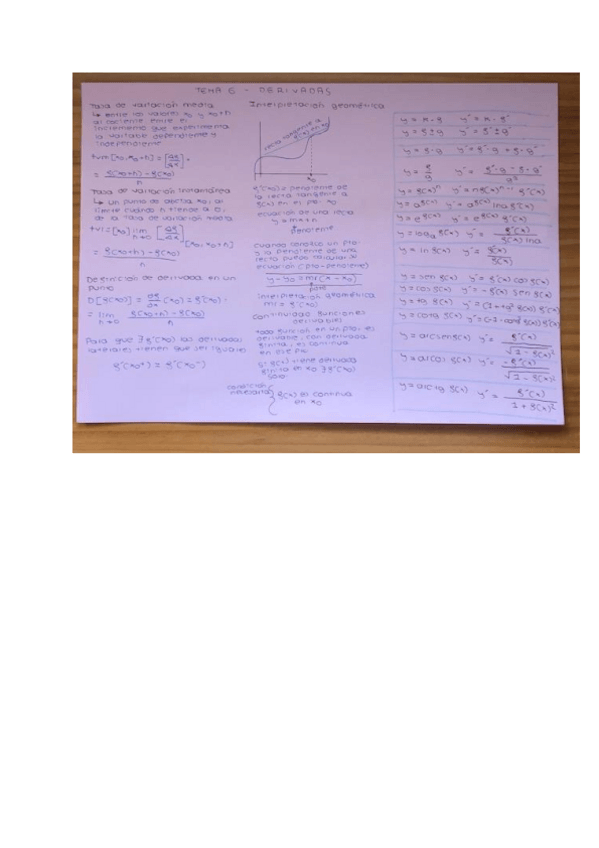 TEMA 6 - DERIVADAS
Tasa de variación media
↳ entre los valores x0 y x0+h
al cociente entre el
incremento que experimenta
la variable dependiente y
independiente
= f(x0+h) - f(x0) / h
Tasa de variación instantánea
↳ un punto de abcisa x0, al
límite cuando h tiende a 0,
de la tasa de variación media
[x0, x0+h]
= f(x0+h) - f(x0) / h
Definición de derivada en un
punto
= lim h→0 f(x0+h) - f(x0) / h
Para que ∃ f'(x0) las derivadas
laterales tienen que ser iguales
f'(x0+) = f'(x0-)
Interpretación geométrica
recta tangente a
f(x) en x0
x0
f'(x0) = pendiente de
la recta tangente a
f(x) en el pto x0
ecuación de una recta
y = mx + n
pendiente
cuando conozco un pto
y la pendiente de una
recta puedo calcular
ecuación (pto-pendiente)
y - y0 = m (x - x0)
Interpretación geométrica
m = f'(x0)
Continuidad funciones
derivables
toda función en un pto es
derivable, con derivada
finita, es continua
en ese pto
si f(x) tiene derivada
finita en x0 ∃ f'(x0)
condición
necesaria { f(x) es continua
en x0
y = k·f y' = k·f'
y = f ± g y' = f' ± g'
y = f·g y' = f'·g + f·g'
y = f / g y' = f'·g - f·g' / g²
y = f(x)ⁿ y' = n f(x)ⁿ⁻¹ · f'(x)
y = a^f(x) y' = a^f(x) lna f'(x)
y = e^f(x) y' = e^f(x) f'(x)
y = loga f(x) y' = f'(x) / f(x) lna
y = ln f(x) y' = f'(x) / f(x)
y = sen f(x) y' = f'(x) cos f(x)
y = cos f(x) y' = -f'(x) sen f(x)
y = tg f(x) y' = (1 + tg² f(x)) f'(x)
y = cotg f(x) y' = (-1 - cotg² f(x)) f'(x)
y = arcsen f(x) y' = f'(x) / √1 - f(x)²
y = arcos f(x) y' = -f'(x) / √1 - f(x)²
y = arctg f(x) y' = f'(x) / 1 + f(x)²